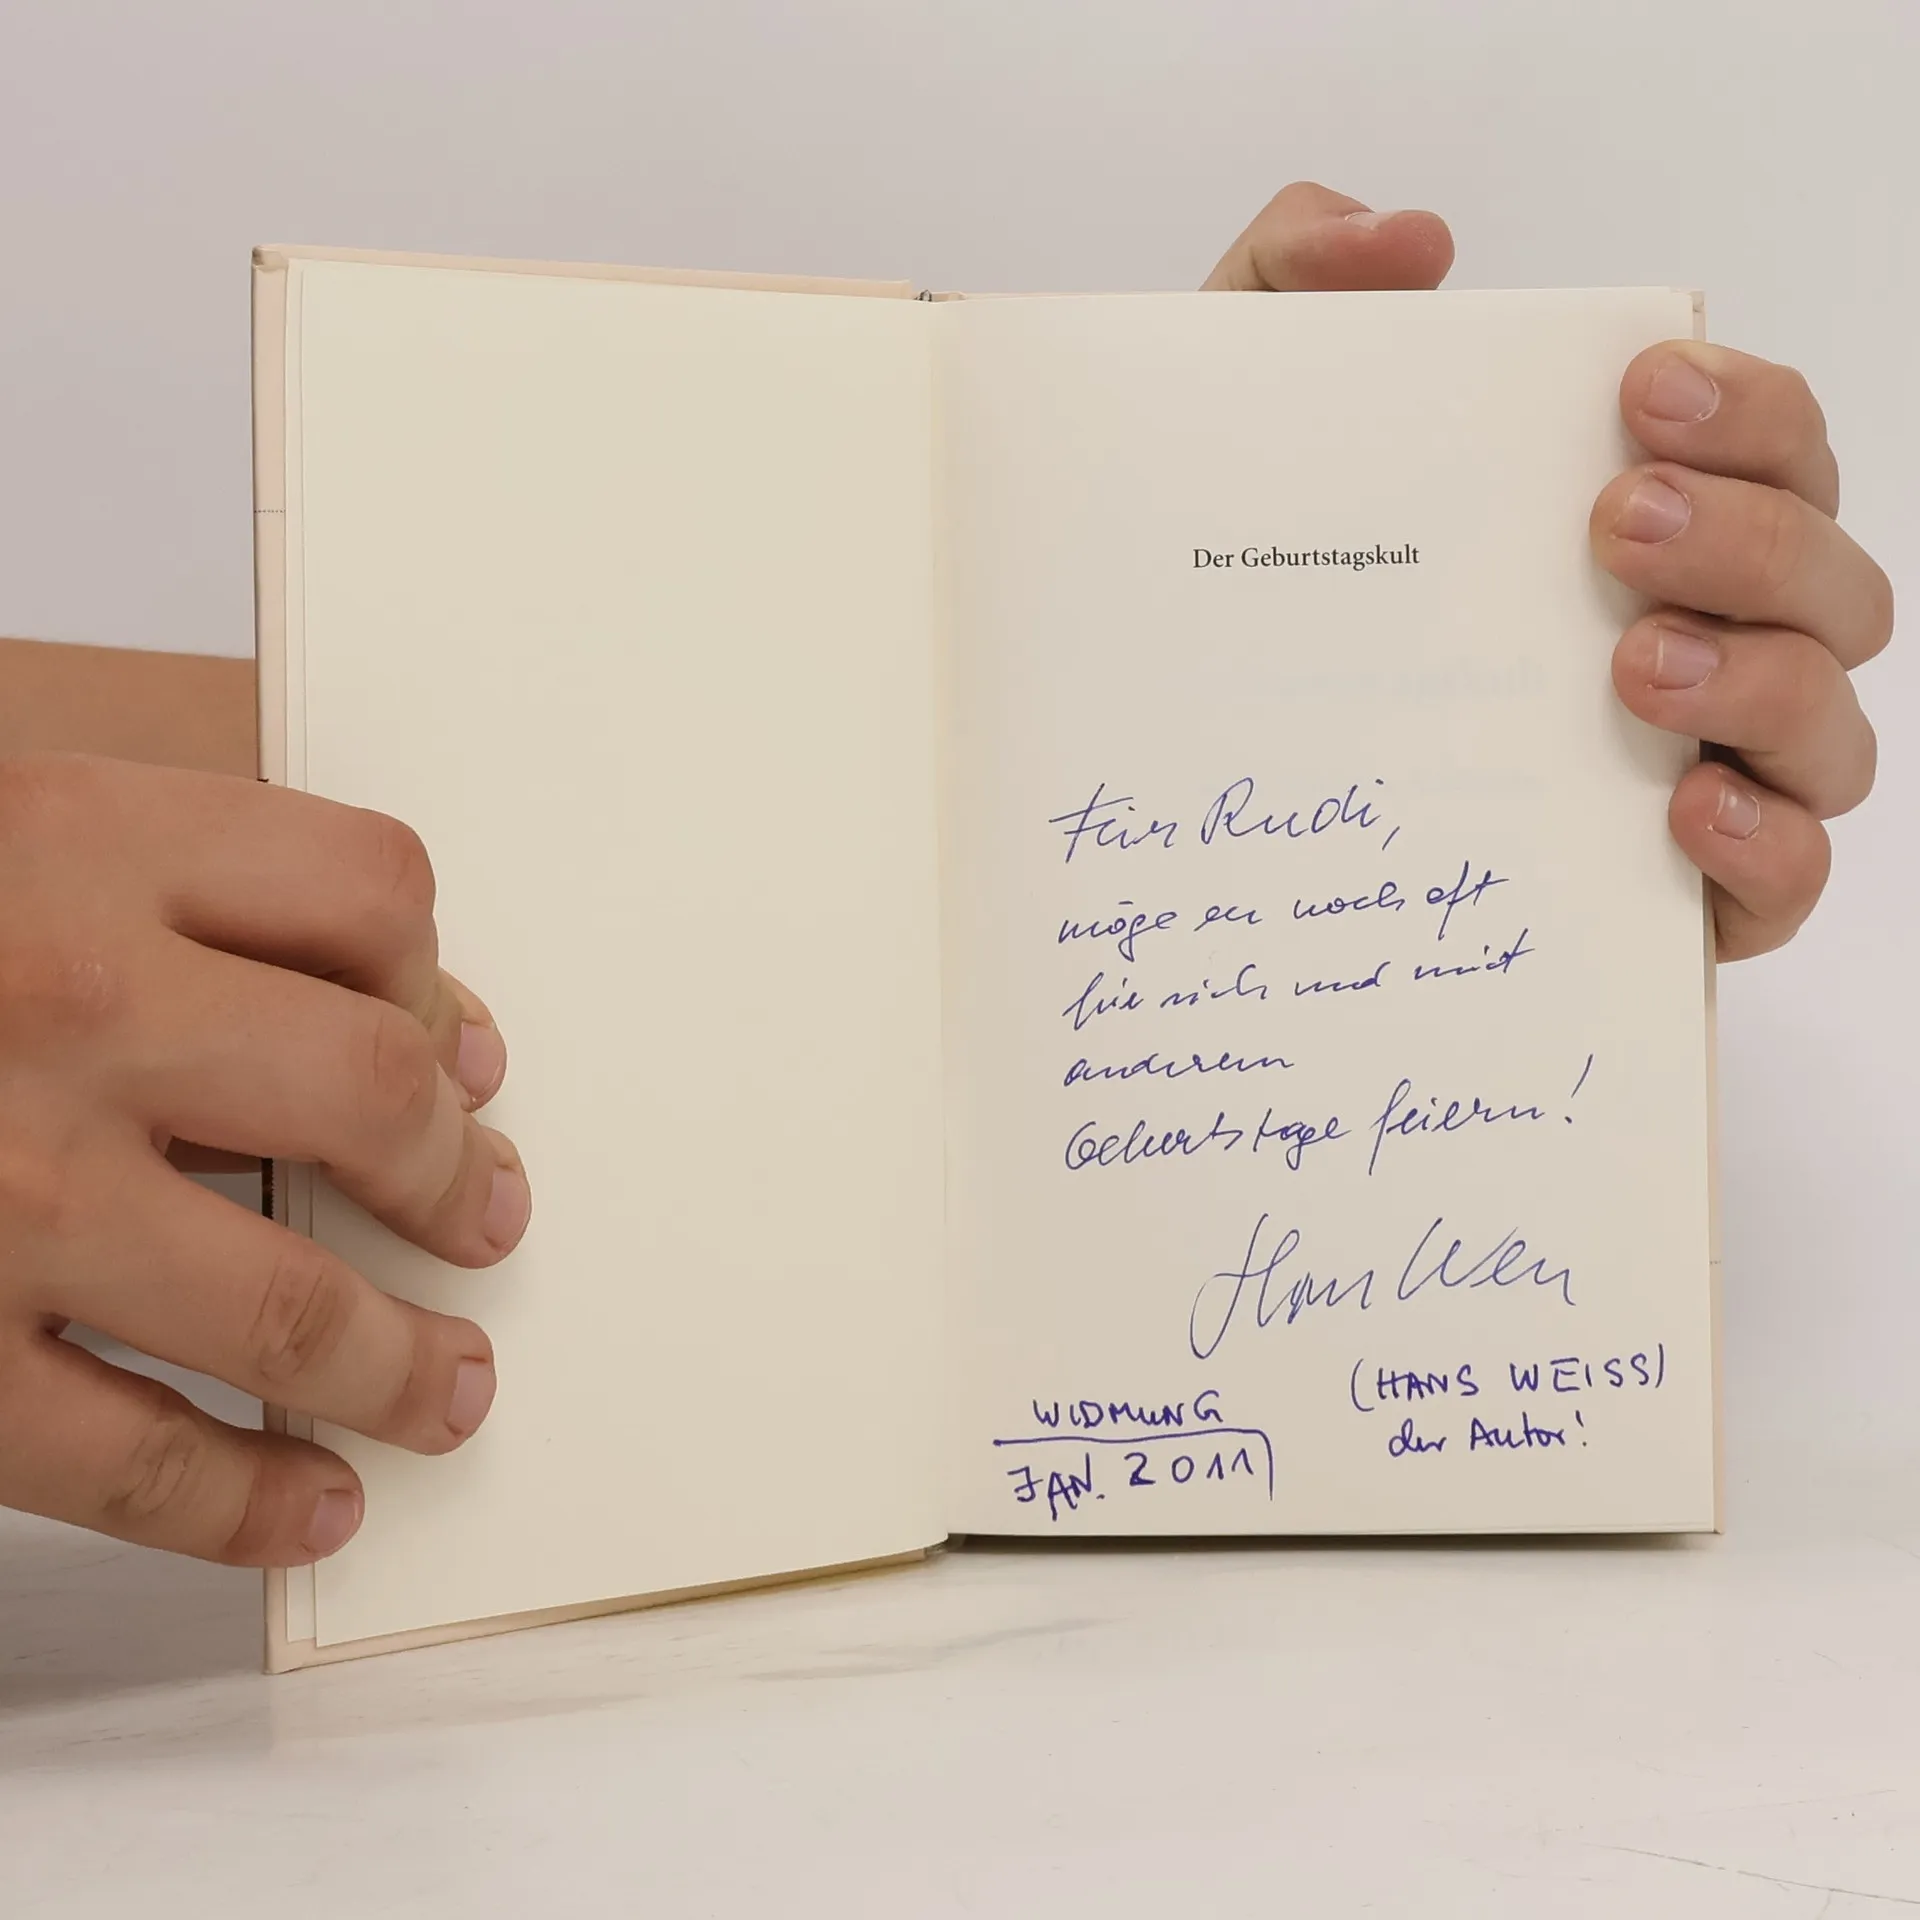 Der Geburtstagskult
Für Rudi,
möge er noch oft
für sich und mit
anderen
Geburtstage feiern!
Hans Weiss
(HANS WEISS)
der Autor!
WIDMUNG
JAN. 2011